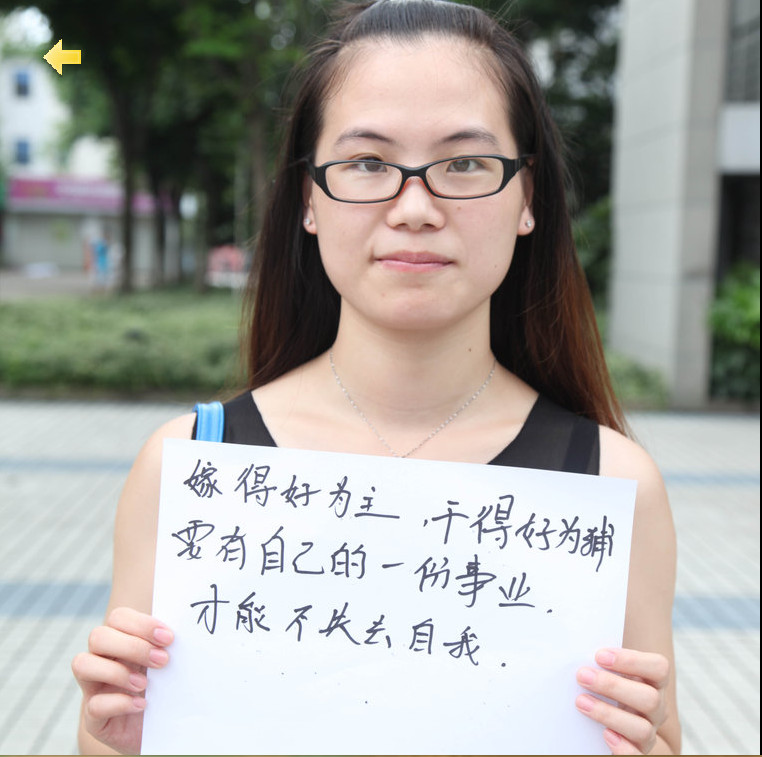 嫁得好为主，干得好为辅
要有自己的一份事业.
才能不失去自我.